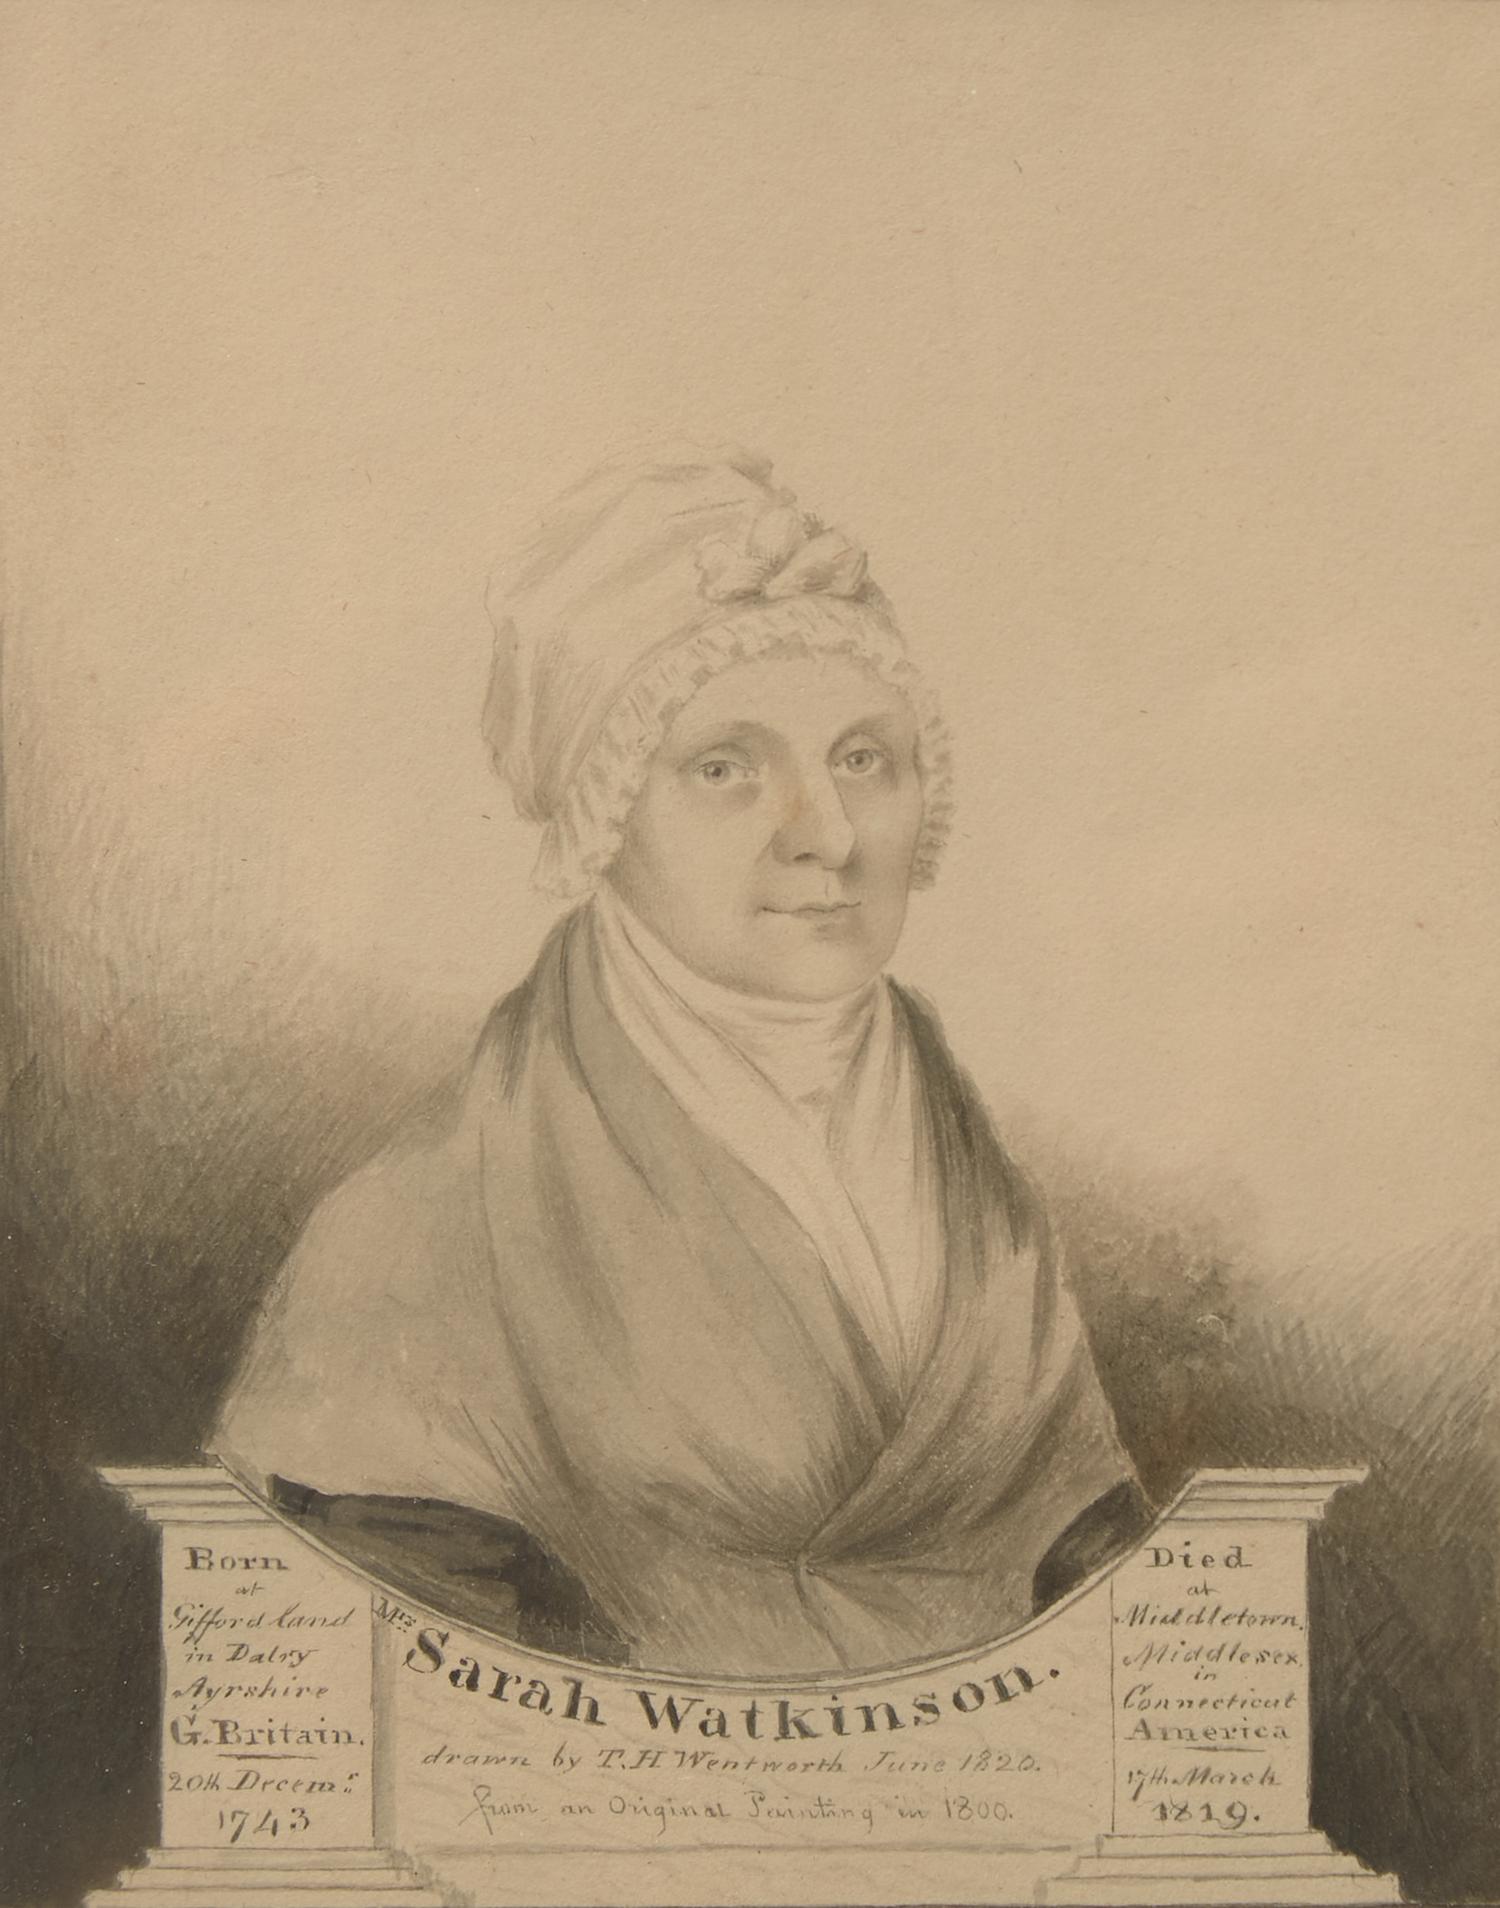 Born
at
Gifford land
in Dalry
Ayrshire
G. Britain.
20th Decemr.
1743
Mrs
Sarah Watkinson.
drawn by T. H Wentworth June 1820.
from an Original Painting in 1800.
Died
at
Middletown.
Middlesex.
in
Connecticut
America
17th March
1819.